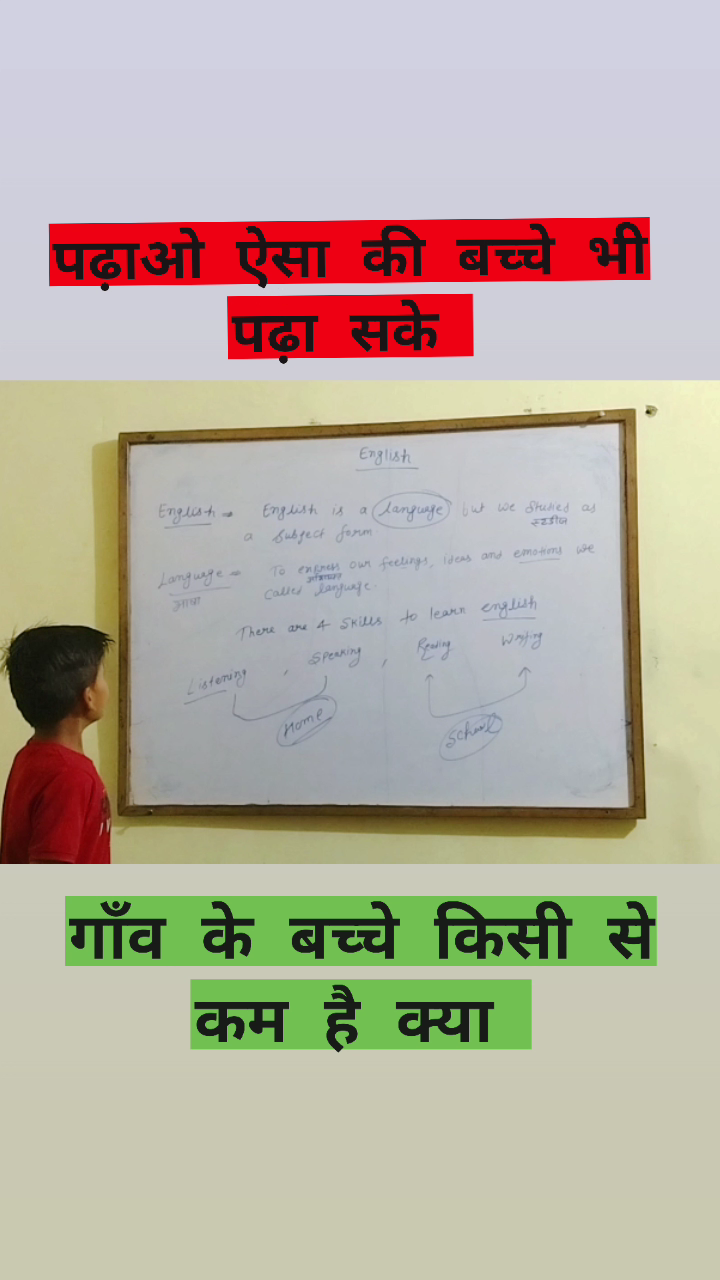 पढ़ाओ ऐसा की बच्चे भी
पढ़ा सके
English
English → English is a language but we studied as
स्टडीज
a subject form.
Language → To express our feelings, ideas and emotions we
भाषा
called language.
There are 4 skills to learn english
Listening , Speaking , Reading Writing
Home School
गाँव के बच्चे किसी से
कम है क्या